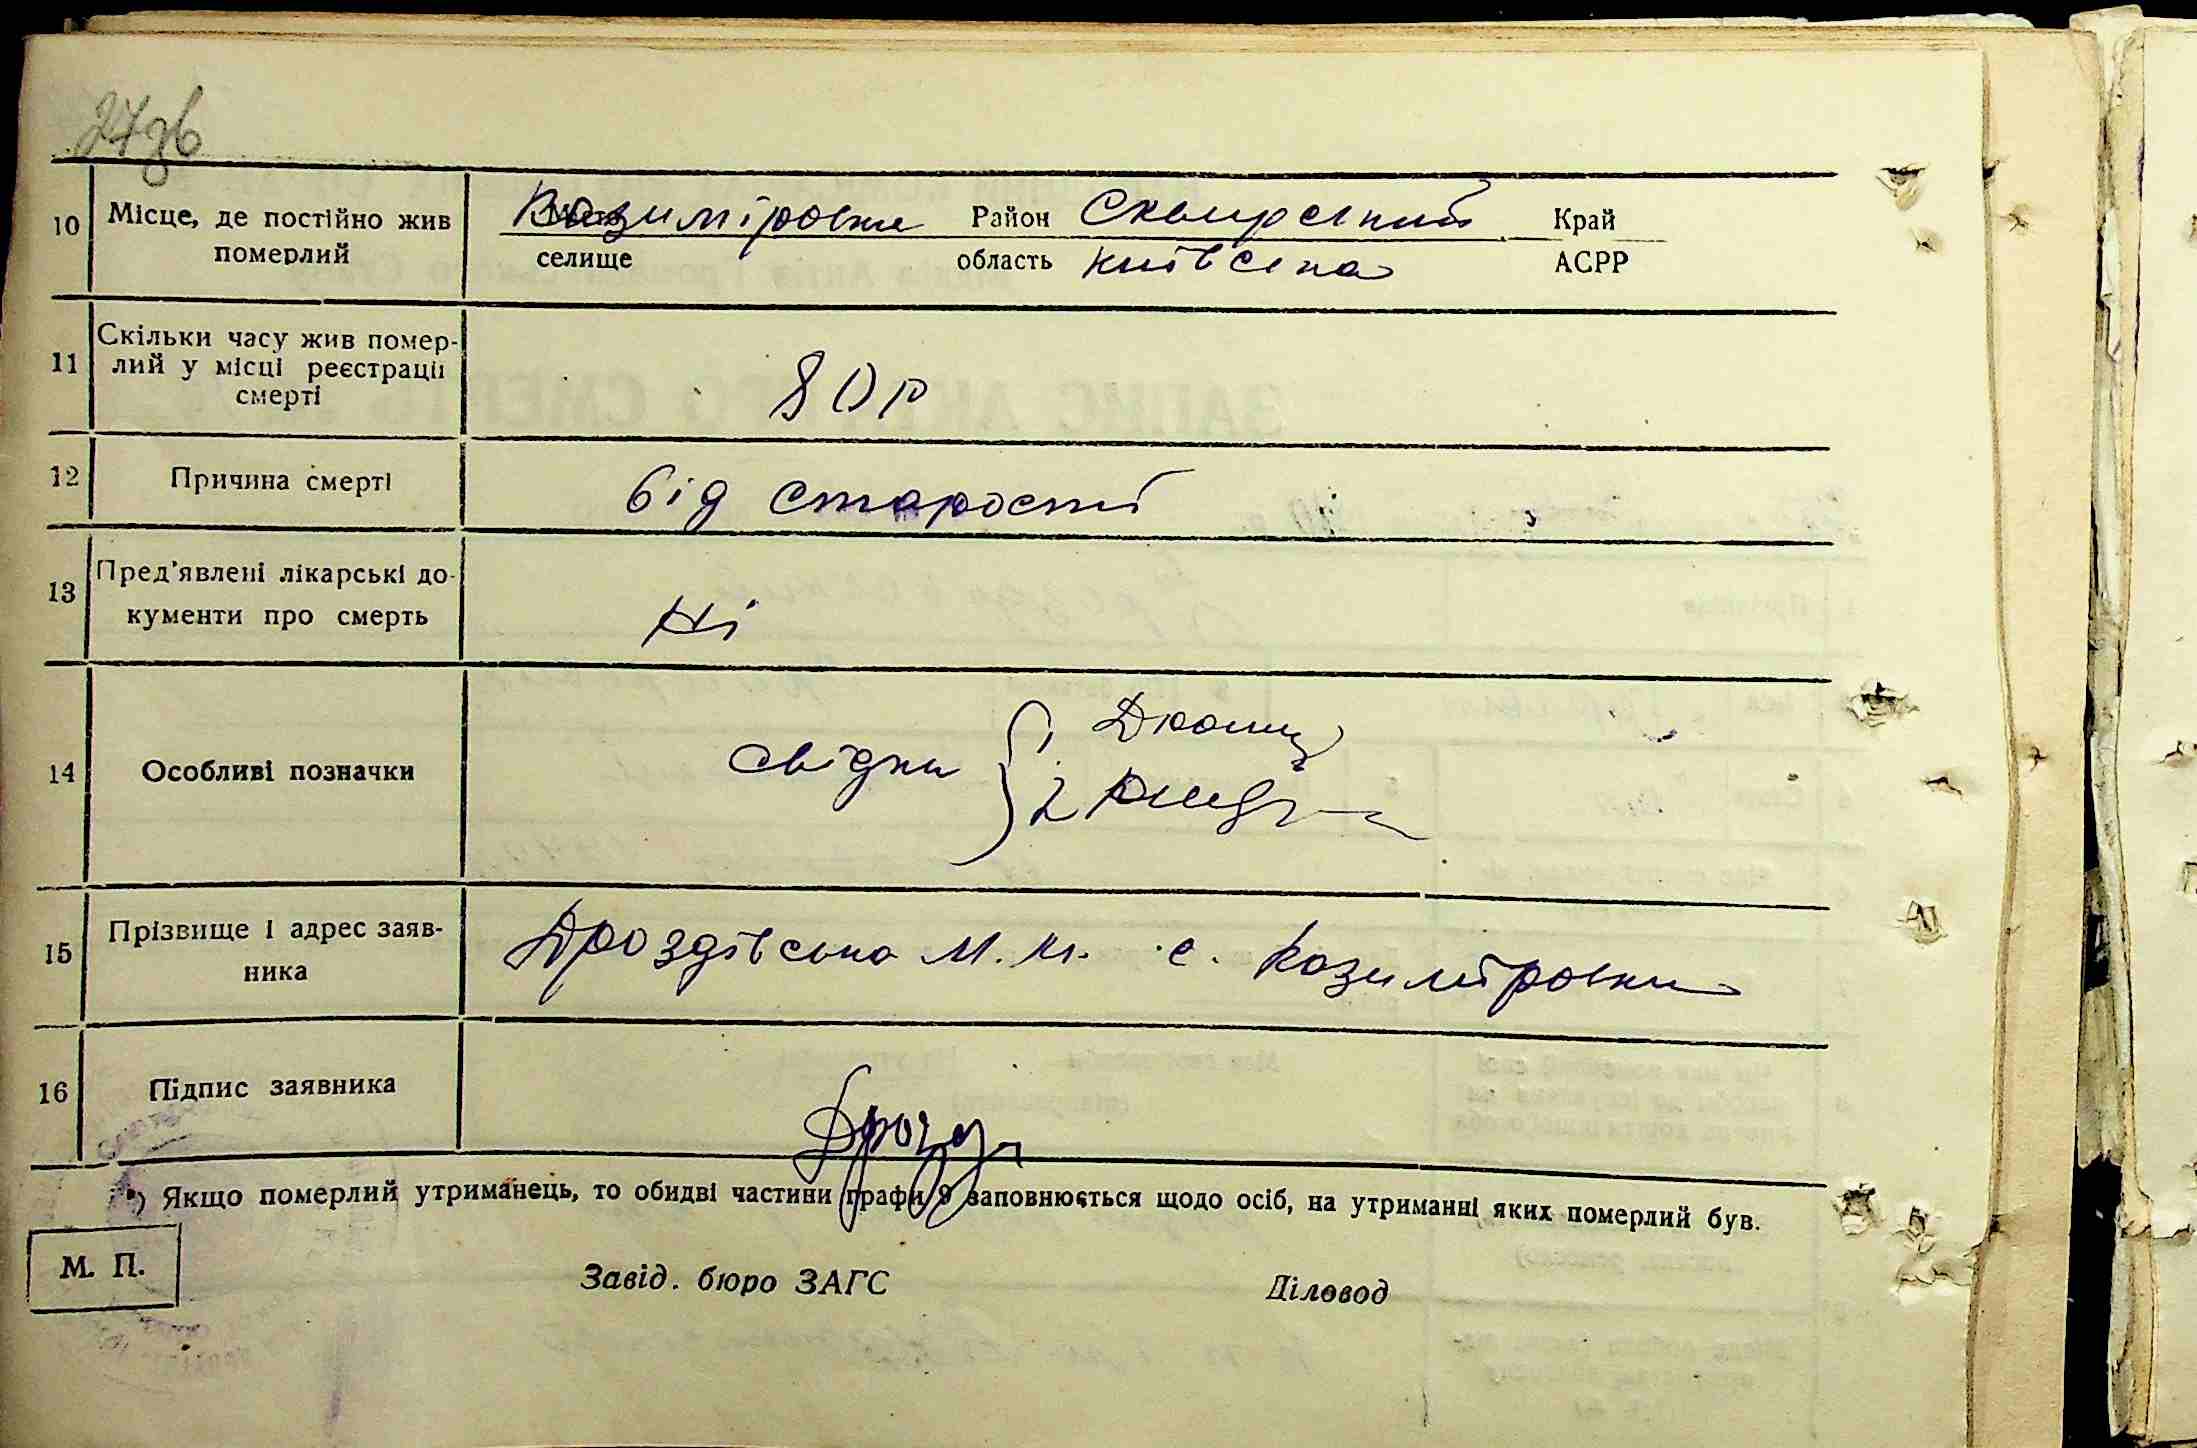 27зв
10 Місце, де постійно жив померлий
Казиміровка Район Сквирський Край
селище область Київська АСРР
11 Скільки часу жив помер-
лий у місці реєстрації
смерті
80 р
12 Причина смерті
від старості
13 Пред'явлені лікарські до-
кументи про смерть
Ні
14 Особливі позначки
свідки 1.
2
15 Прізвище і адрес заяв-
ника
Дроздівська М. с. Казиміровка
16 Підпис заявника
Дрозд
*) Якщо померлий утриманець, то обидві частини графи 9 заповнюється щодо осіб, на утриманні яких померлий був.
М. П.
Завід. бюро ЗАГС Діловод